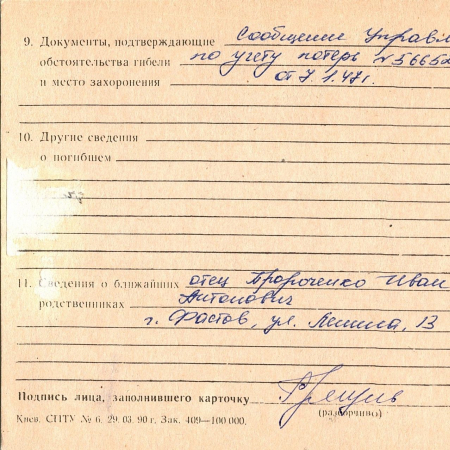 9. Документы, подтверждающие Сообщение Управл
обстоятельства гибели по учету потерь № 56652
и место захоронения от 7.1.47г.
10. Другие сведения
о погибшем
11. Сведения о ближайших отец Пророченко Иван
родственниках Антонович
г. Фастов, ул. Ленина, 13
Подпись лица, заполнившего карточку
(разборчиво)
Киев. СПТУ № 6. 29. 03. 90 г. Зак. 409—100.000.